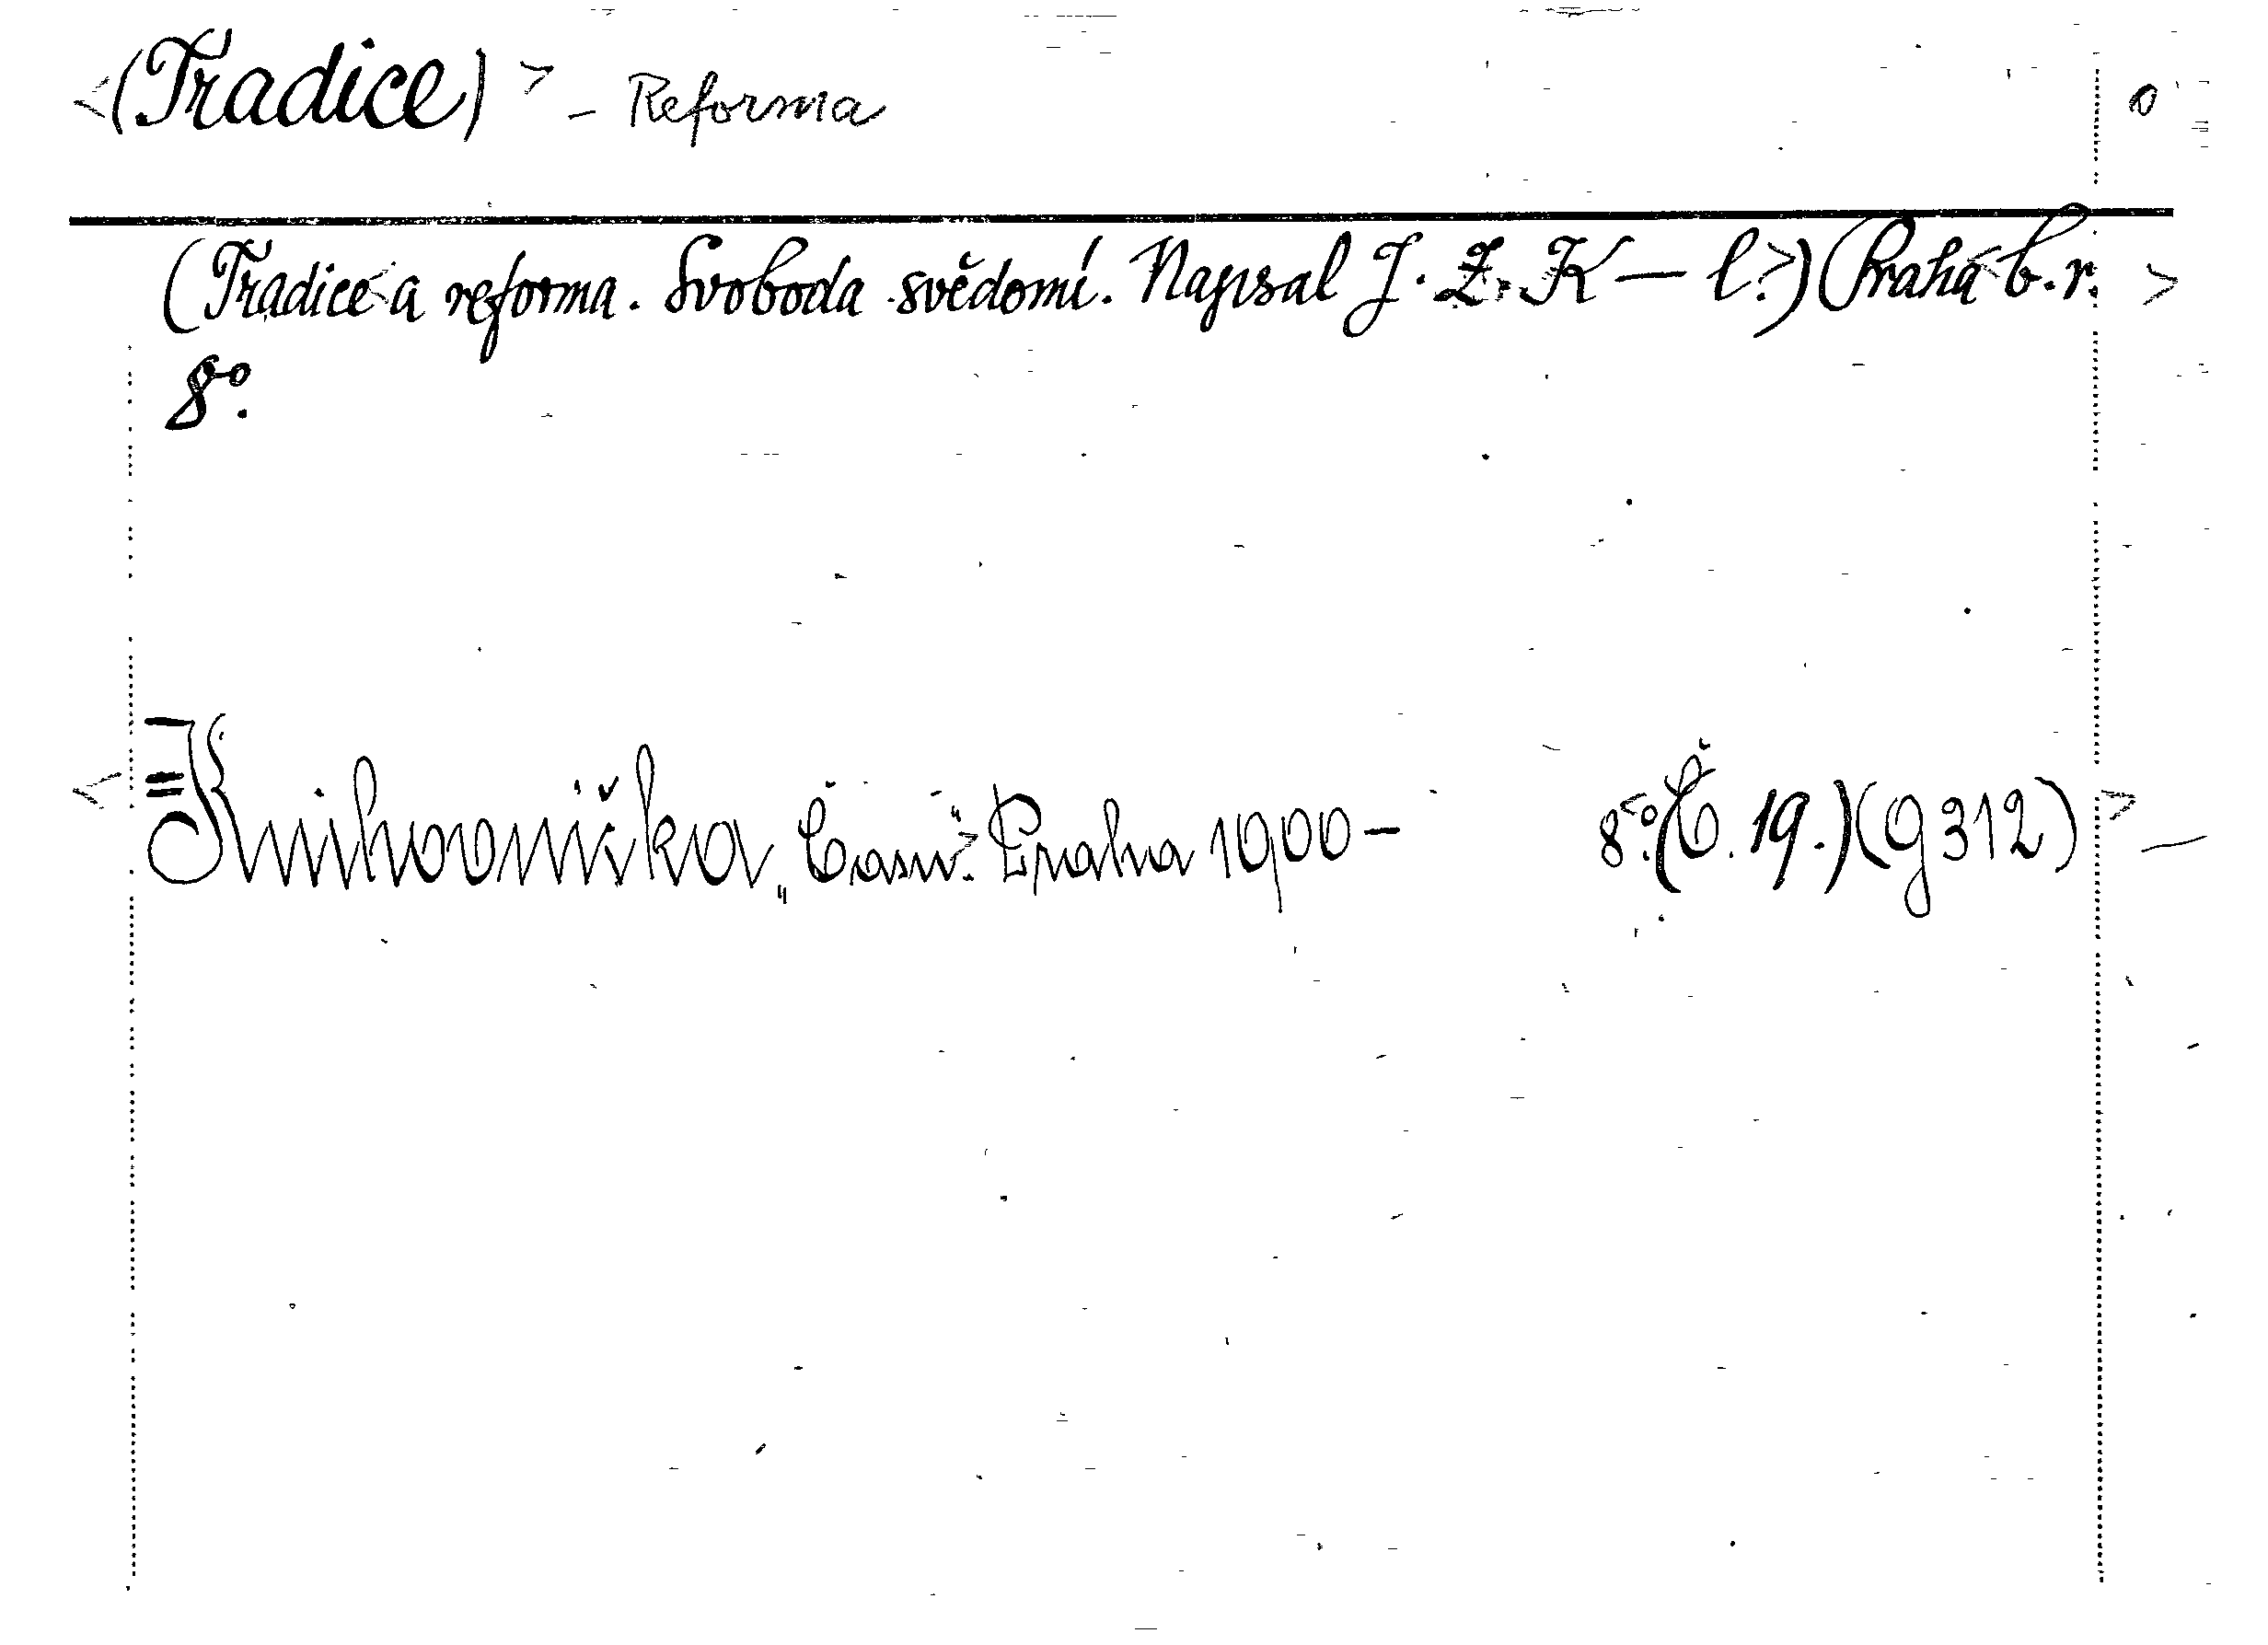 <(Tradice)> – Reforma 0
(Tradice< a reforma. Svoboda svědomí. Napsal J. Z. K – l.>) (Praha< b. r. >
8°.
< = Knihovnička „Času“.> Praha 1900 – 8°.<(Č. 19.) (g 312)> –